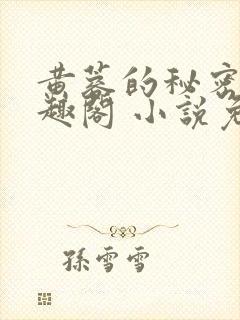 黄蓉的秘密
趣閣 小說免
孫雪雪